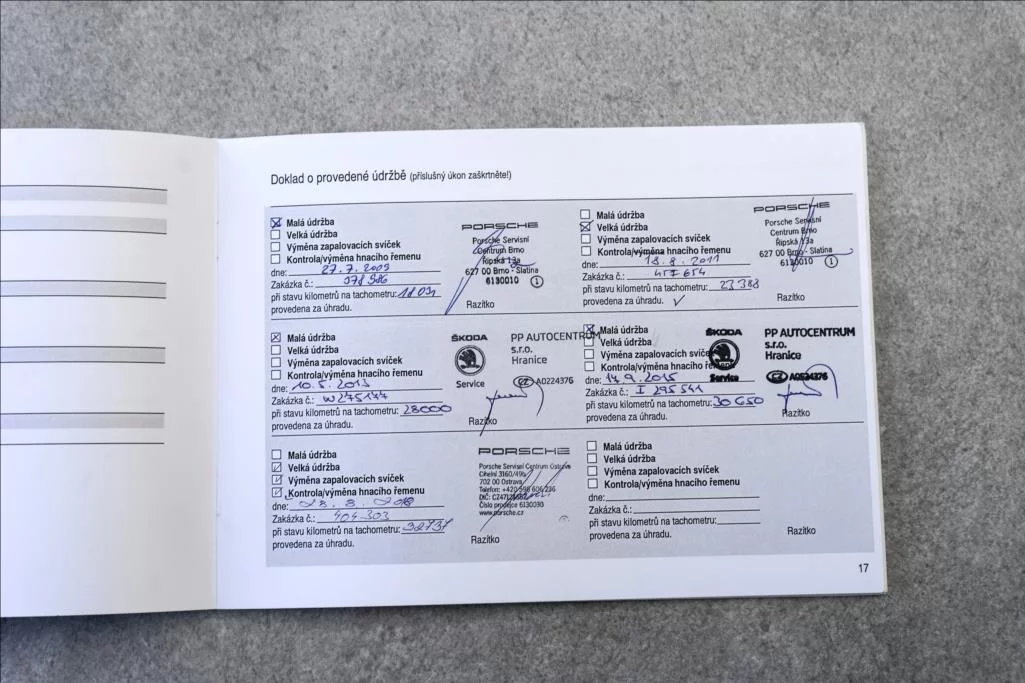 Doklad o provedené údržbě (příslušný úkon zaškrtněte!)
Malá údržba
Velká údržba
Výměna zapalovacích svíček
Kontrola/výměna hnacího řemenu
dne: 27.7.2009
Zakázka č.: 378986
při stavu kilometrů na tachometru:
provedena za úhradu.
PORSCHE
Porsche Servisní
Centrum Brno
Řipská 13a
627 00 Brno - Slatina
6130010 1
Razítko
Malá údržba
Velká údržba
Výměna zapalovacích svíček
Kontrola/výměna hnacího řemenu
dne: 18.8.2011
Zakázka č.: 457654
při stavu kilometrů na tachometru: 23388
provedena za úhradu.
PORSCHE
Porsche Servisní
Centrum Brno
Řipská 13a
627 00 Brno - Slatina
6130010 1
Razítko
Malá údržba
Velká údržba
Výměna zapalovacích svíček
Kontrola/výměna hnacího řemenu
dne: 10.5.2013
Zakázka č.: W275177
při stavu kilometrů na tachometru: 28000
provedena za úhradu.
ŠKODA
Service
PP AUTOCENTRUM
s.r.o.
Hranice
CZ A0224376
Razítko
Malá údržba
Velká údržba
Výměna zapalovacích svíček
Kontrola/výměna hnacího řemenu
dne: 14.9.2015
Zakázka č.: I 295541
při stavu kilometrů na tachometru: 30650
provedena za úhradu.
ŠKODA
Service
PP AUTOCENTRUM
s.r.o.
Hranice
CZ
Razítko
Malá údržba
Velká údržba
Výměna zapalovacích svíček
Kontrola/výměna hnacího řemenu
dne:
Zakázka č.: 404303
při stavu kilometrů na tachometru: 32737
provedena za úhradu.
PORSCHE
Porsche Servisní Centrum Ostrava
Cihelní 3160/49b
702 00 Ostrava
Telefon: +420 596 606 236
DIČ:
Číslo prodejce 6130030
www.porsche.cz
Razítko
Malá údržba
Velká údržba
Výměna zapalovacích svíček
Kontrola/výměna hnacího řemenu
dne:
Zakázka č.:
při stavu kilometrů na tachometru:
provedena za úhradu.
Razítko
17